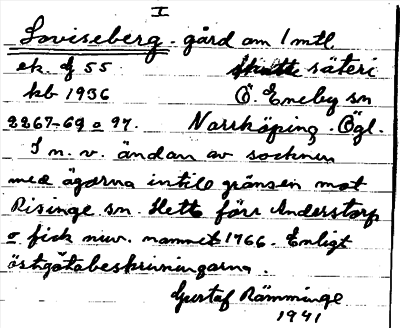 I
Loviseberg - gård om 1 mtl.
ek. bf 55 skatte säteri
kb 1936 Ö. Eneby sn
2267-69 o 97. Norrköping. Ögl.
I n. v. ändan av socknen
med ägorna intill gränsen mot
Risinge sn. Hette förr Anderstorp
o fick nuv. namnet 1766. Enligt
östgötabeskrivningarna.
Gustaf Rämminge
1941